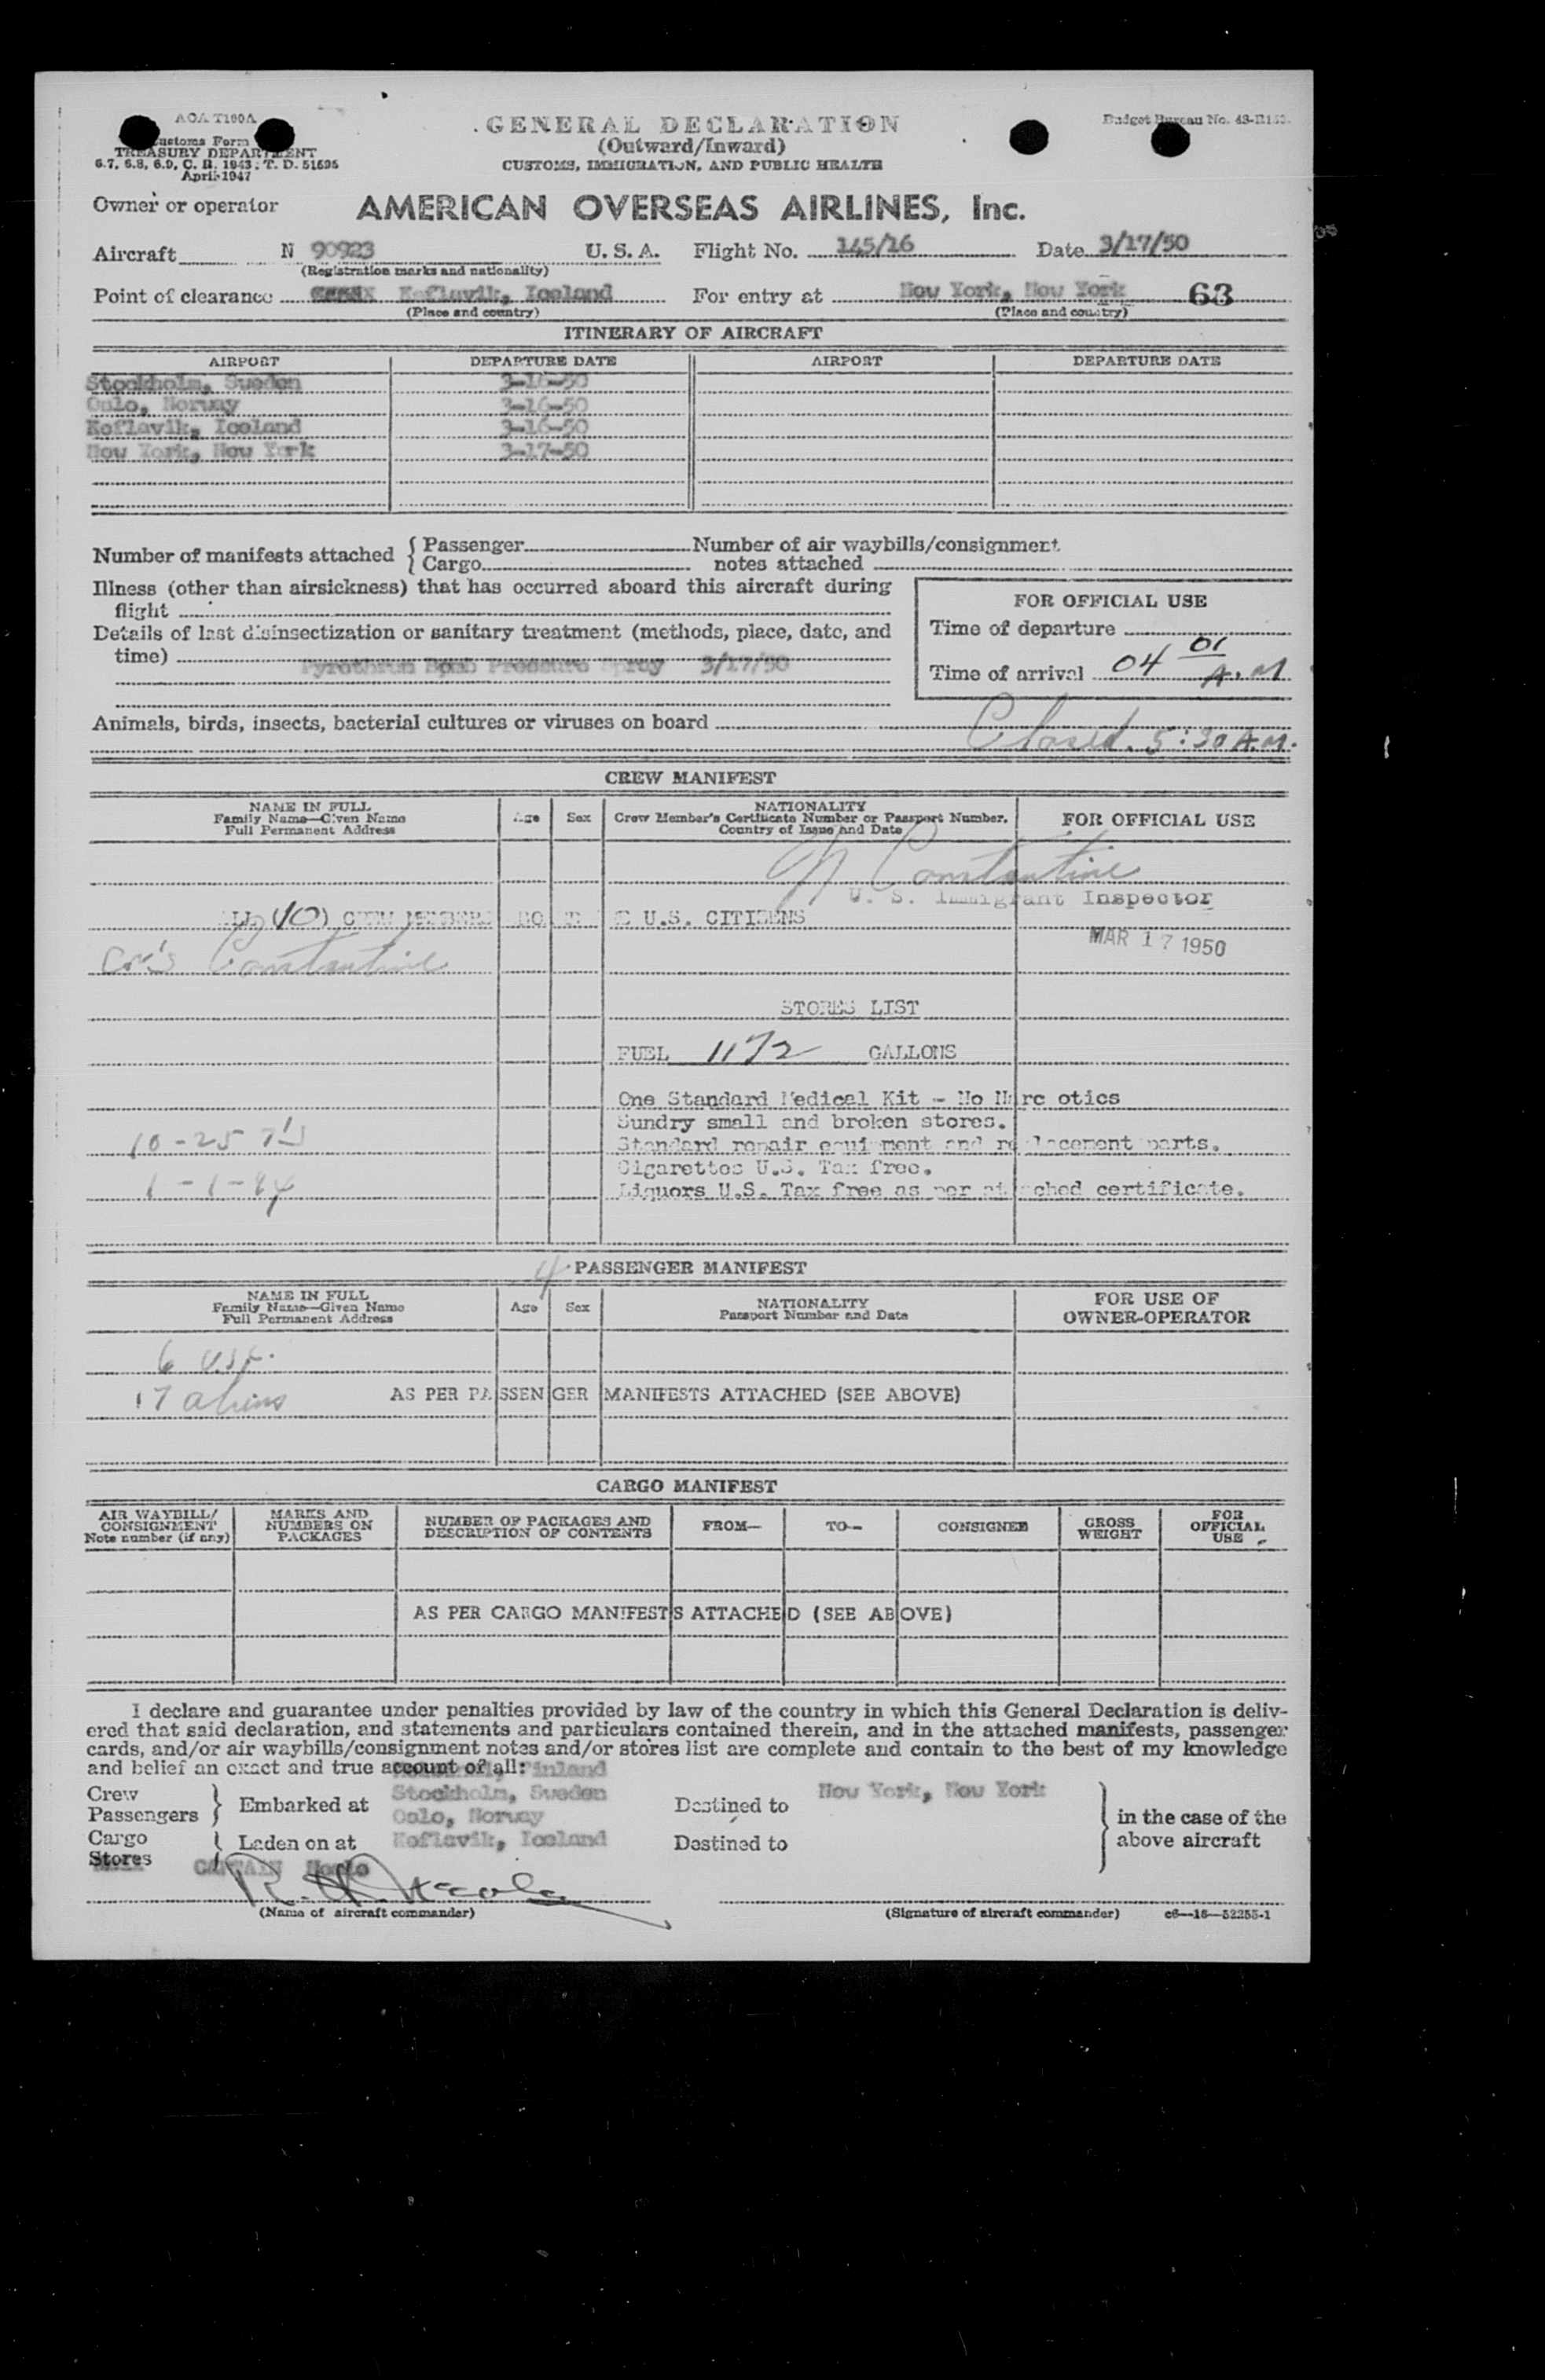 AOA T100A
Customs Form
TREASURY DEPARTMENT
6.7, 6.8, 6.9, C. R. 1943: T. D. 51695
April 1947
GENERAL DECLARATION
(Outward/Inward)
CUSTOMS, IMMIGRATION, AND PUBLIC HEALTH
Budget Bureau No.
Owner or operator AMERICAN OVERSEAS AIRLINES, Inc.
Aircraft N 90923 U. S. A. Flight No. 145/16 Date 3/17/50
(Registration marks and nationality)
Point of clearance Keflavik, Iceland For entry at New York, New York 63
(Place and country) (Place and country)
ITINERARY OF AIRCRAFT
AIRPORT DEPARTURE DATE AIRPORT DEPARTURE DATE
Stockholm, Sweden 3-16-50
Oslo, Norway 3-16-50
Keflavik, Iceland 3-16-50
New York, New York 3-17-50
Number of manifests attached { Passenger Number of air waybills/consignment
Cargo notes attached
Illness (other than airsickness) that has occurred aboard this aircraft during
flight
Details of last disinsectization or sanitary treatment (methods, place, date, and
time) Pyrethrum Bomb Pressure Spray 3/17/50
FOR OFFICIAL USE
Time of departure
Time of arrival 04 01 A.M
Animals, birds, insects, bacterial cultures or viruses on board
Closed. 5:30 A.M.
CREW MANIFEST
NAME IN FULL
Family Name—Given Name
Full Permanent Address
Age Sex
NATIONALITY
Crew Member's Certificate Number or Passport Number.
Country of Issue and Date
FOR OFFICIAL USE
Constantine
U. S. Immigrant Inspector
ALL (10) CREW MEMBERS U.S. CITIZENS
MAR 17 1950
Constantine
STORES LIST
FUEL 1172 GALLONS
One Standard Medical Kit - No Narc otics
Sundry small and broken stores.
Standard repair equipment and replacement parts.
Cigarettes U.S. Tax free.
Liquors U.S. Tax free as per attached certificate.
4 PASSENGER MANIFEST
NAME IN FULL
Family Name—Given Name
Full Permanent Address
Age Sex
NATIONALITY
Passport Number and Date
FOR USE OF
OWNER-OPERATOR
6
17 aliens
AS PER PASSENGER MANIFESTS ATTACHED (SEE ABOVE)
CARGO MANIFEST
AIR WAYBILL/
CONSIGNMENT
Note number (if any)
MARKS AND
NUMBERS ON
PACKAGES
NUMBER OF PACKAGES AND
DESCRIPTION OF CONTENTS
FROM—
TO—
CONSIGNEE
GROSS
WEIGHT
FOR
OFFICIAL
USE
AS PER CARGO MANIFESTS ATTACHED (SEE ABOVE)
I declare and guarantee under penalties provided by law of the country in which this General Declaration is deliv-
ered that said declaration, and statements and particulars contained therein, and in the attached manifests, passenger
cards, and/or air waybills/consignment notes and/or stores list are complete and contain to the best of my knowledge
and belief an exact and true account of all: Finland
Crew
Passengers } Embarked at
Stockholm, Sweden
Oslo, Norway
Destined to New York, New York
in the case of the
above aircraft
Cargo
Stores
Laden on at Keflavik, Iceland
Destined to
CAPTAIN
(Name of aircraft commander)
(Signature of aircraft commander) c6—16—52255-1